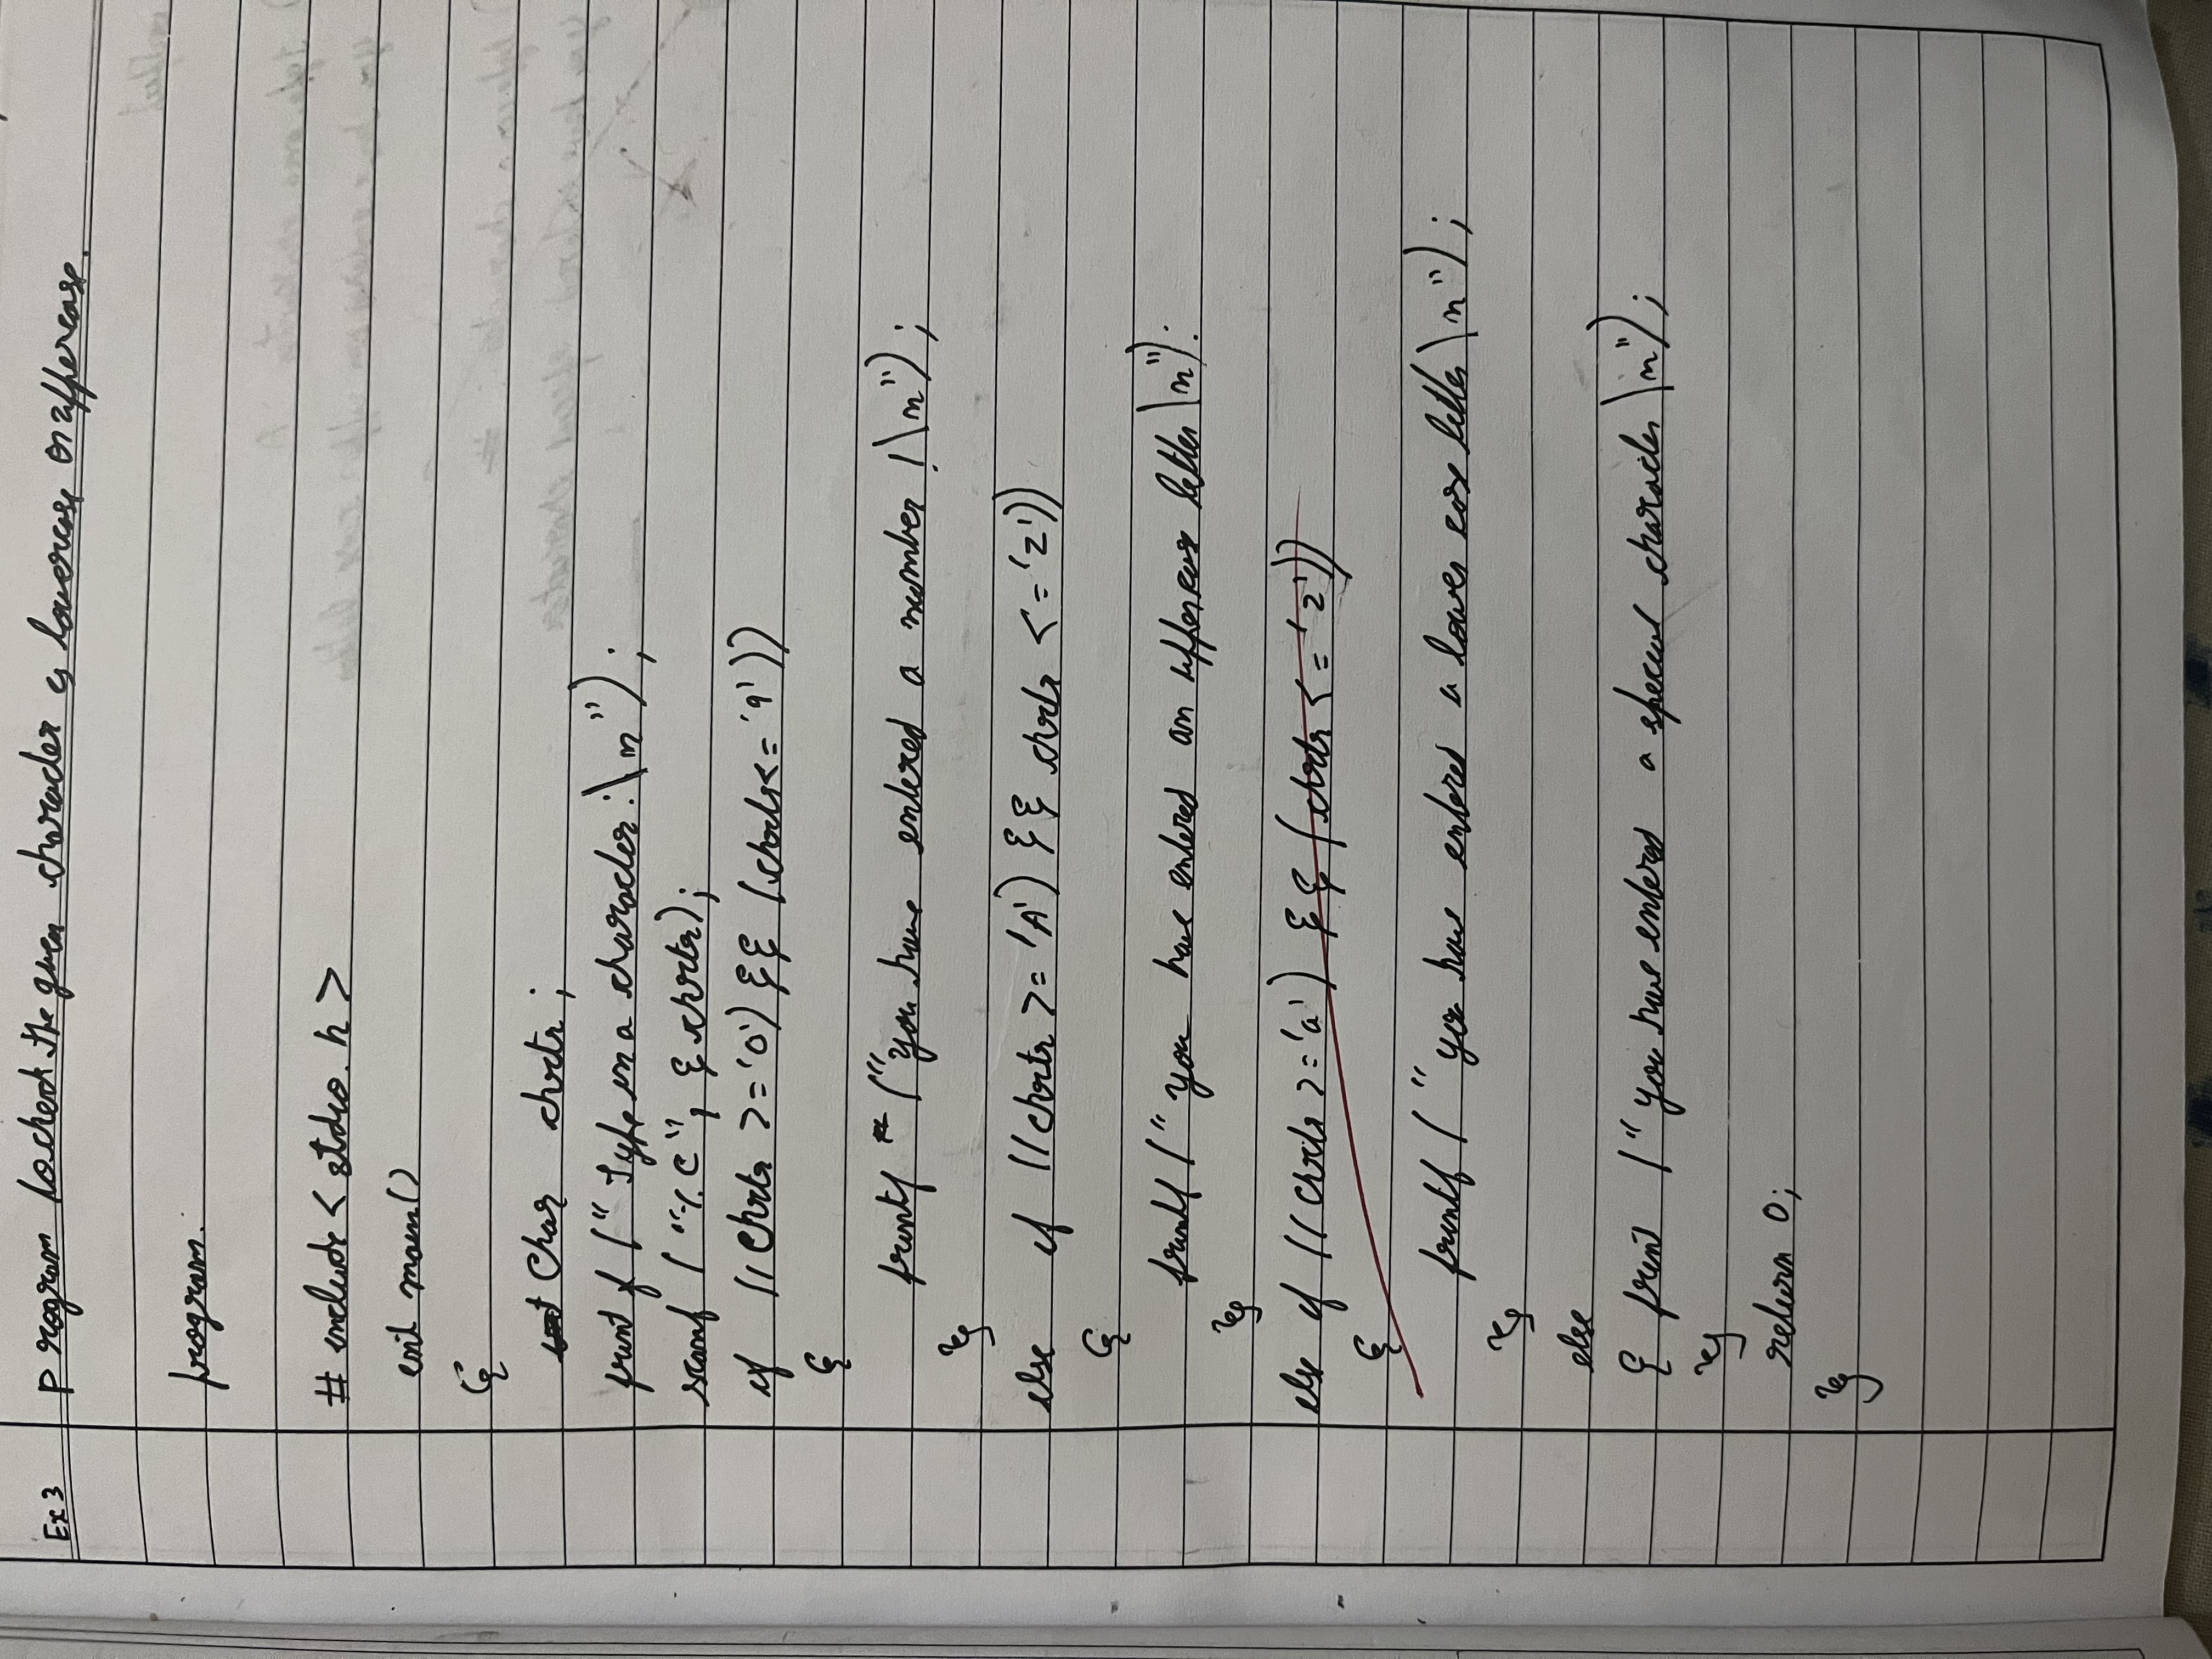 Ex 3 program to check the given character is lowercase or uppercase.
program.
# include < stdio. h >
int main()
{
int Char chrtr ;
print f ("Type in a character :\n") ;
scanf ("%c", & chrtr);
if ((chrtr >= '0') && (chrtr <= '9'))
{
printf ("you have entered a number !\n") ;
}
else if ((chrtr >= 'A') && chrtr <= 'Z'))
{
printf (" you have entered an uppercase letter \n"):
}
else if ((chrtr >= 'a') && (chrtr <= 'z'))
{
printf ( "you have entered a lower case letter \n") ;
}
else
{ print (" you have entered a special character \n") ;
}
return 0;
}